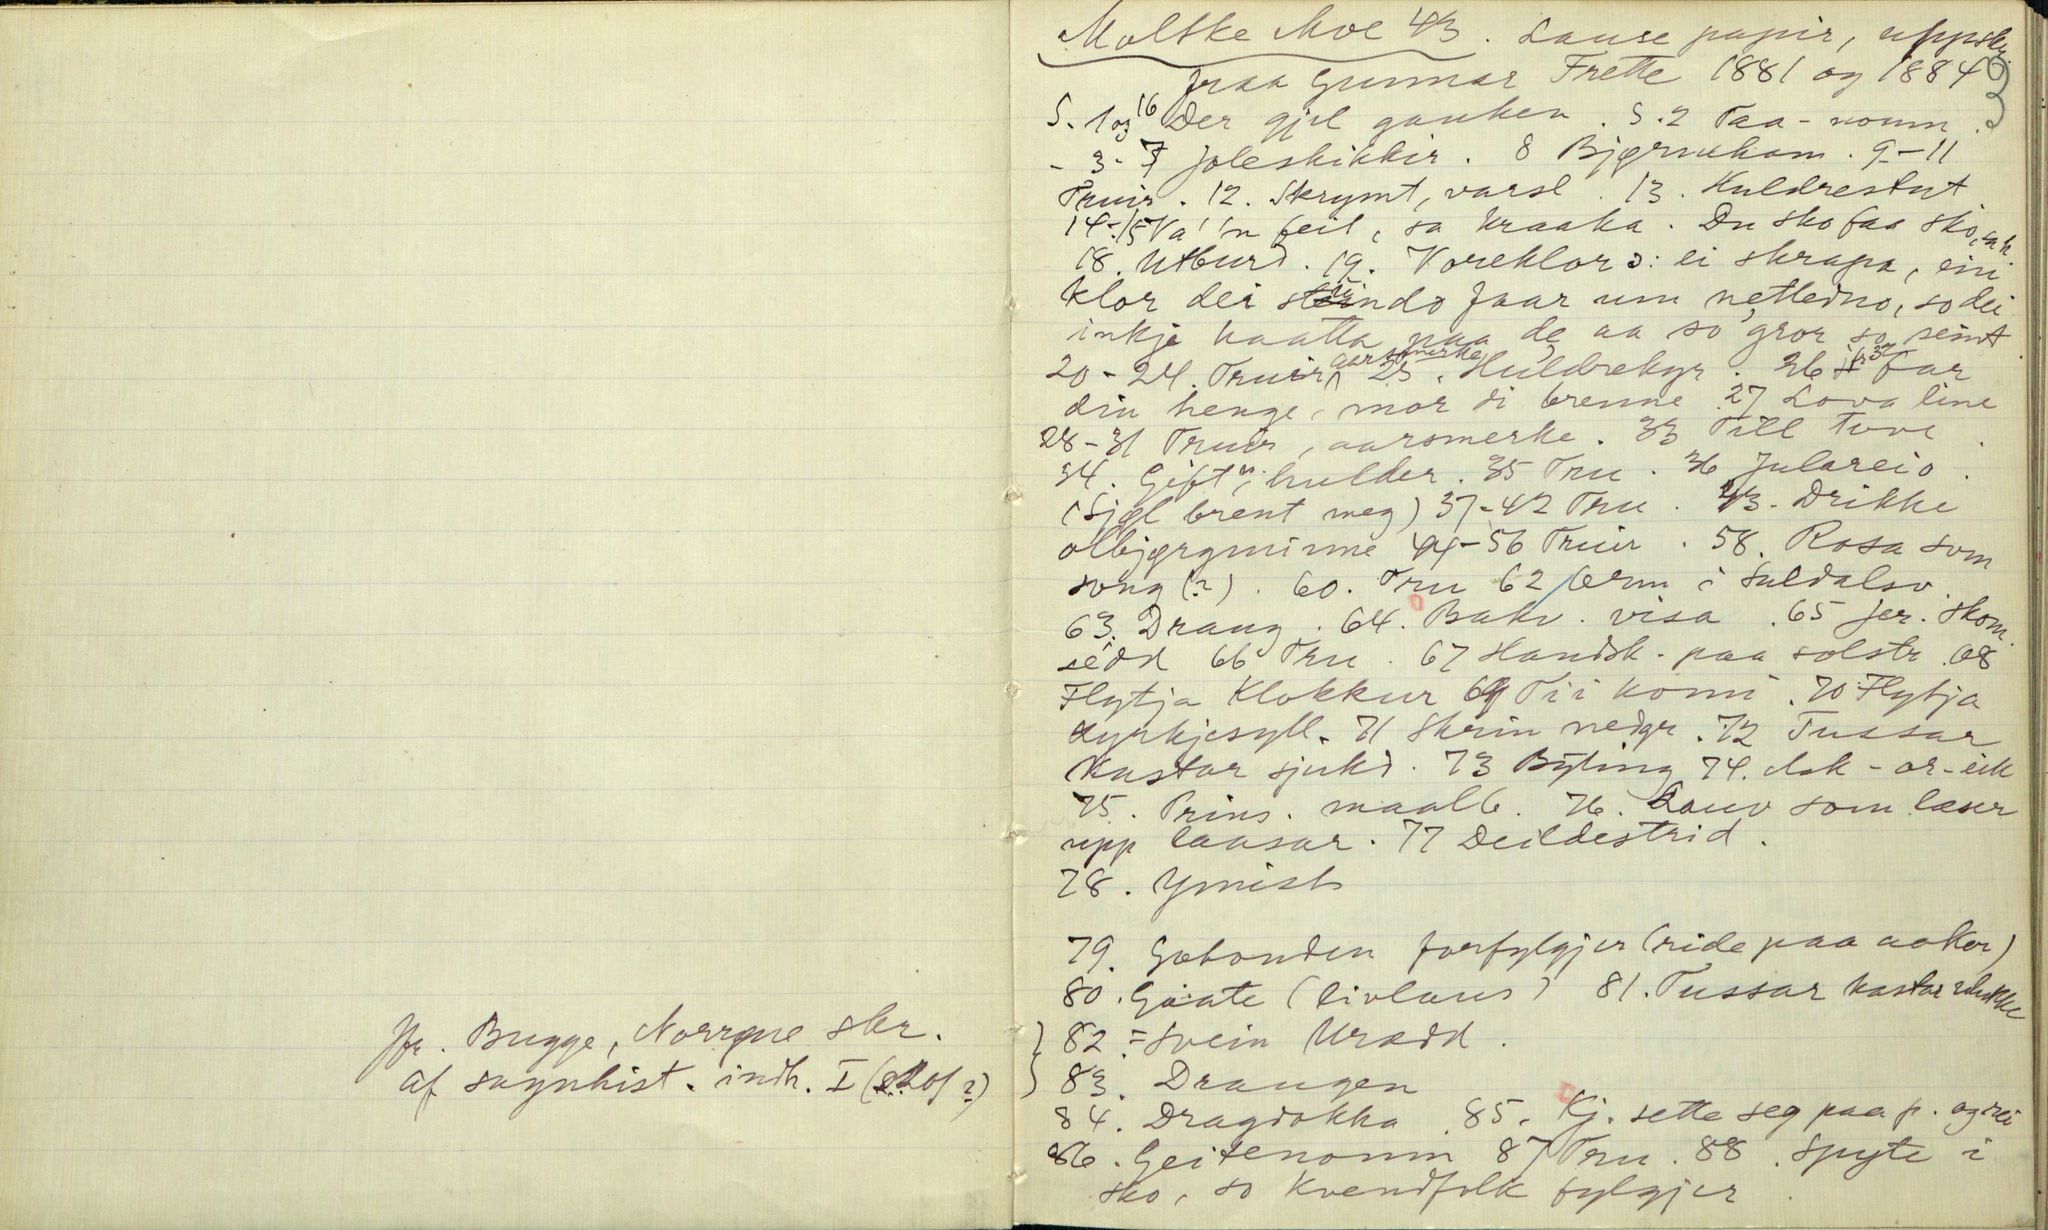 Jfr. Bugge, Norrøne skr.
af sagnhist. indh. I (201 ?)
Moltke Moe 43. Lause papir, uppskr.
fraa Gunnar Frette 1881 og 1884
S. 1 og 16 Der gjel gauken. S. 2 Taa-noum.
- 3-7 Joleskikkir. 8 Bjørneham. 9-11
Truir. 12. Skrymt, varsl. 13. Huldrestut
14-15 Va' 'n feil, sa kraaka. Du sko faa sko, sa h.
18. Utburd. 19. Voreklor ɔ: ei skrapa, ein
klor dei faar um netledno, so dei
inkje kaatta paa de aa so gror so seint
20-24. Truir, aarsmerke 25. Huldrekyr. 26 jfr 32 Far
din henge, mor di brenne 27 Lova line
28-31 Truir, aarsmerke. 33 Till tove.
34. Gift m. hulder. 35 Tru. 36 Julareio.
(Sjøl brent meg) 37-42 Tru. 43. Drikke
olbjørgminne 44-56 Truir. 58. Rosa som
song (?). 60. Tru 62 Orm i Suldalsv.
63. Draug. 64. Bakv. visa. 65 Jer. Skom.
sedd 66 Tru. 67 Handsk. paa solstr. 68
Flytja Klokkur 69 Ti i komi. 70 Flytja
kyrkjesyll. 71 Skrin nedgr. 72 Tussar
kastar sjukd. 73 Byting 74. Ask-or-eik
75. Prins. maalb. 76. Lauv som læser
upp laasar. 77 Deildestrid.
78. Ymist
79. Gobonden forfylgjer (ride paa aaker)
80. Gaate (livlaus) 81. Tussar kastar
82. = Svein Urædd.
83. Draugen
84. Dragdokka. 85. Kj. sette seg paa p. og rei
86. Geitenomn 87 Tru. 88. Spyte i
sko, so kvendfolk fylgjer.